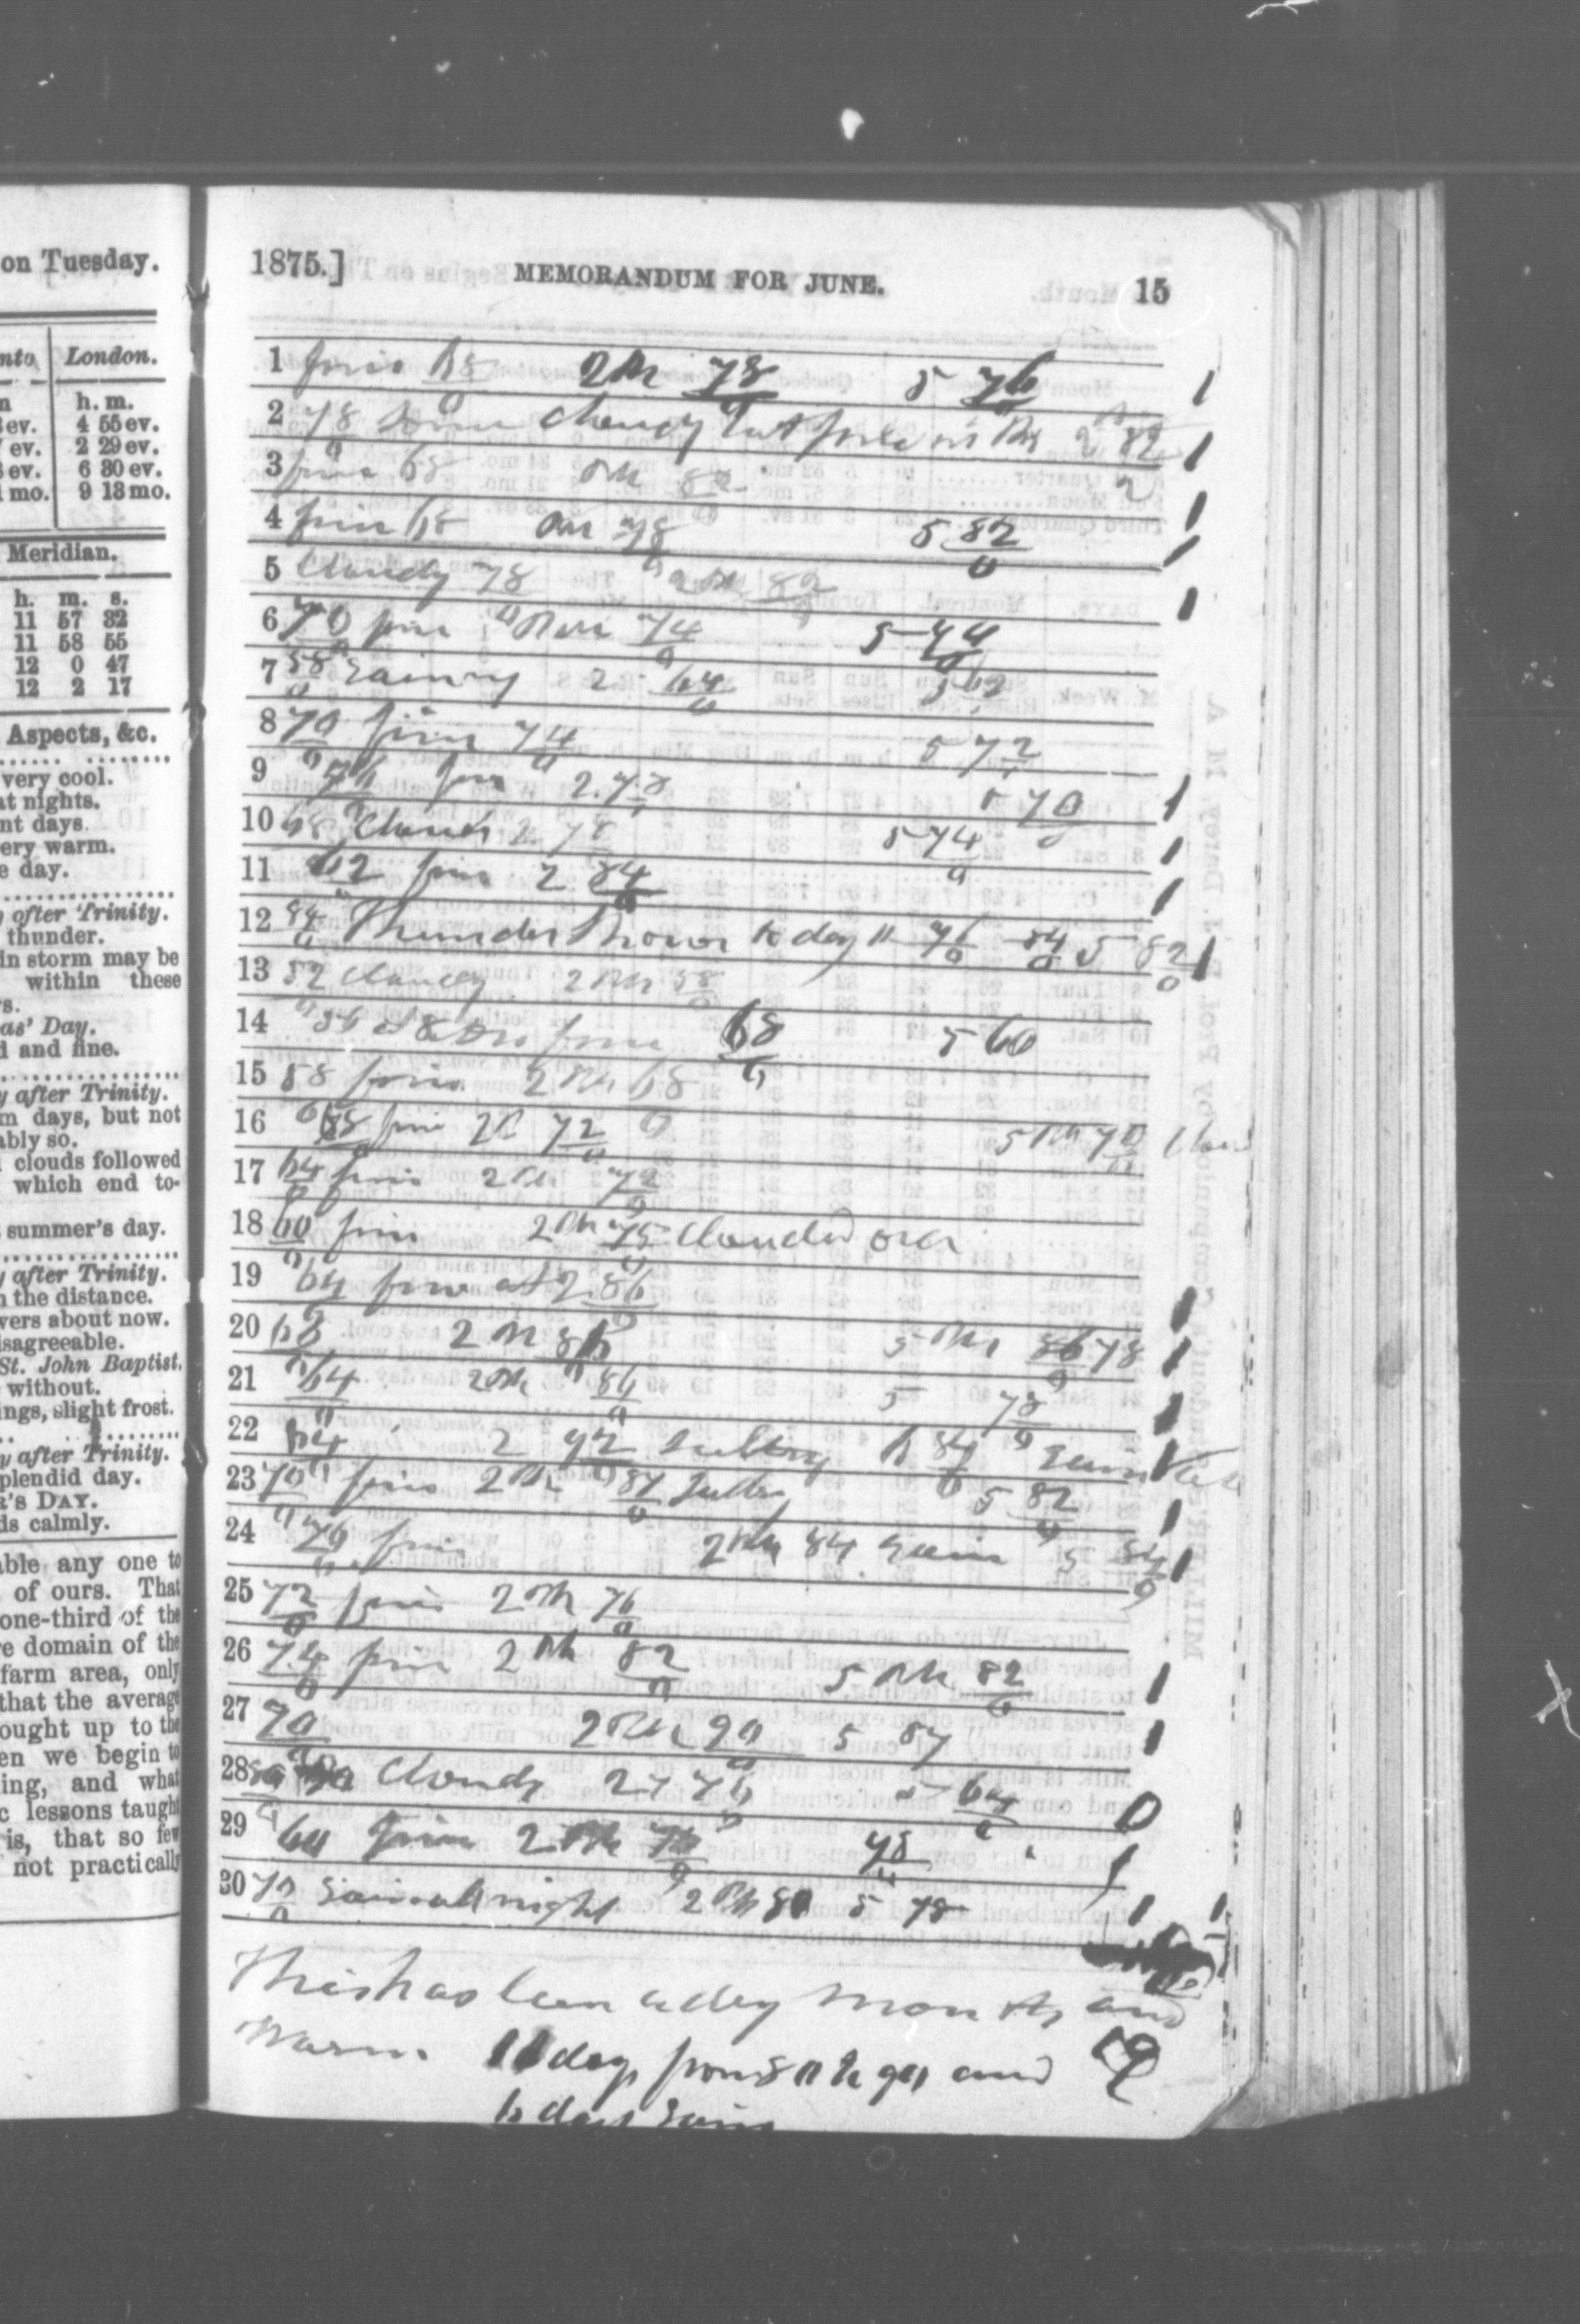 on Tuesday.
London.
h. m.
ev. 4 55 ev.
ev. 2 29 ev.
ev. 6 30 ev.
mo. 9 13 mo.
Meridian.
h. m. s.
11 57 32
11 58 55
12 0 47
12 2 17
Aspects, &c.
very cool.
at nights.
nt days.
ery warm.
e day.
y after Trinity.
thunder.
in storm may be
within these
s.
as' Day.
d and fine.
y after Trinity.
m days, but not
ably so.
clouds followed
which end to-
summer's day.
y after Trinity.
n the distance.
vers about now.
isagreeable.
St. John Baptist.
without.
ings, slight frost.
y after Trinity.
plendid day.
R'S DAY.
ds calmly.
able any one to
of ours. That
one-third of the
re domain of the
farm area, only
that the average
ought up to the
en we begin to
ing, and what
c lessons taught
is, that so few
not practically
1875.] MEMORANDUM FOR JUNE. 15
1 fine 68 2 PM 78 5 76
2 78 cloudy but 2 82
3 fine 68 PM 82
4 fine 68 PM 78 5 82
5 Cloudy 78 2 PM 82
6 70 fine PM 74 5 74
7 58 rainy 2 64 5 62
8 70 fine 74 5 72
9 76 fine 2. 78 5 70
10 68 Cloudy 2 78 5 74
11 62 fine 2 84
12 84 Thunder Shower to day 11 76 84 5 82
13 52 cloudy 2 PM 58
14 56 at 8 fine 68 5 60
15 58 fine 2 PM 68
16 68 fine 2 P 72 5 PM 70
17 64 fine 2 PM 72
18 60 fine 2 PM 75 Clouded over
19 64 fine at 2 86
20 68 2 PM 86 5 PM 86 78
21 64 2 PM 86 5 78
22 64 2 92 sultry 84 rain
23 70 fine 2 PM 87 5 82
24 76 fine 2 PM 84 rain 5 84
25 72 fine 2 PM 76
26 74 fine 2 PM 82 5 PM 82
27 70 2 PM 90 5 87
28 Cloudy 2 76 64
29 60 fine 2 PM 76 78
30 70 rain all night 2 PM 80 5 78
This has been a dry month and
Warm. 11 days from 80 to 90 and
6 days rain